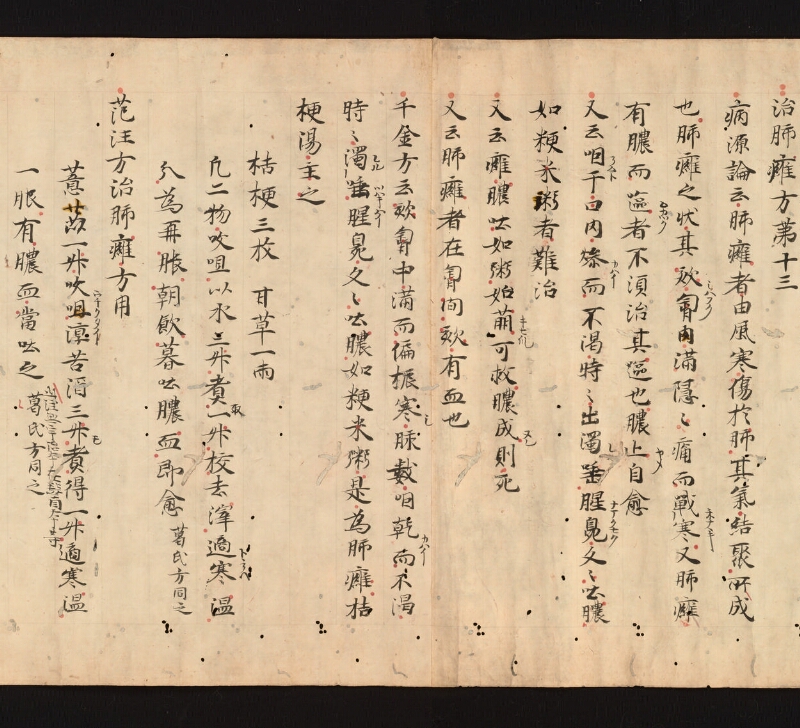 治肺癰方第十三
病源論云肺癰者由風寒傷於肺其氣結聚所成
也肺癰之狀其欬胷內滿隱〻痛而戰寒又肺癰
有膿而嘔者不須治其嘔也膿止自愈
又云咽干內燥而不渴時〻出濁唾腥臭久〻吐膿
如粳米粥者難治
又云癰膿吐如粥始萠可救膿成則死
又云肺癰者在胷間欬有血也
千金方云欬胷中滿而振寒脉數咽乾而不渴
時〻濁唾腥臭久〻吐膿如粳米粥是為肺癰桔
梗湯主之
桔梗三枚 甘草一兩
凡二物㕮咀以水三升煮取一升校去滓適寒温
分為再服朝飲暮吐膿血即愈 葛氏方同之
范汪方治肺癰方用
薏苡一升㕮咀淳苦酒三升煮得一升適寒温
一服有膿血當吐之 葛氏方同之